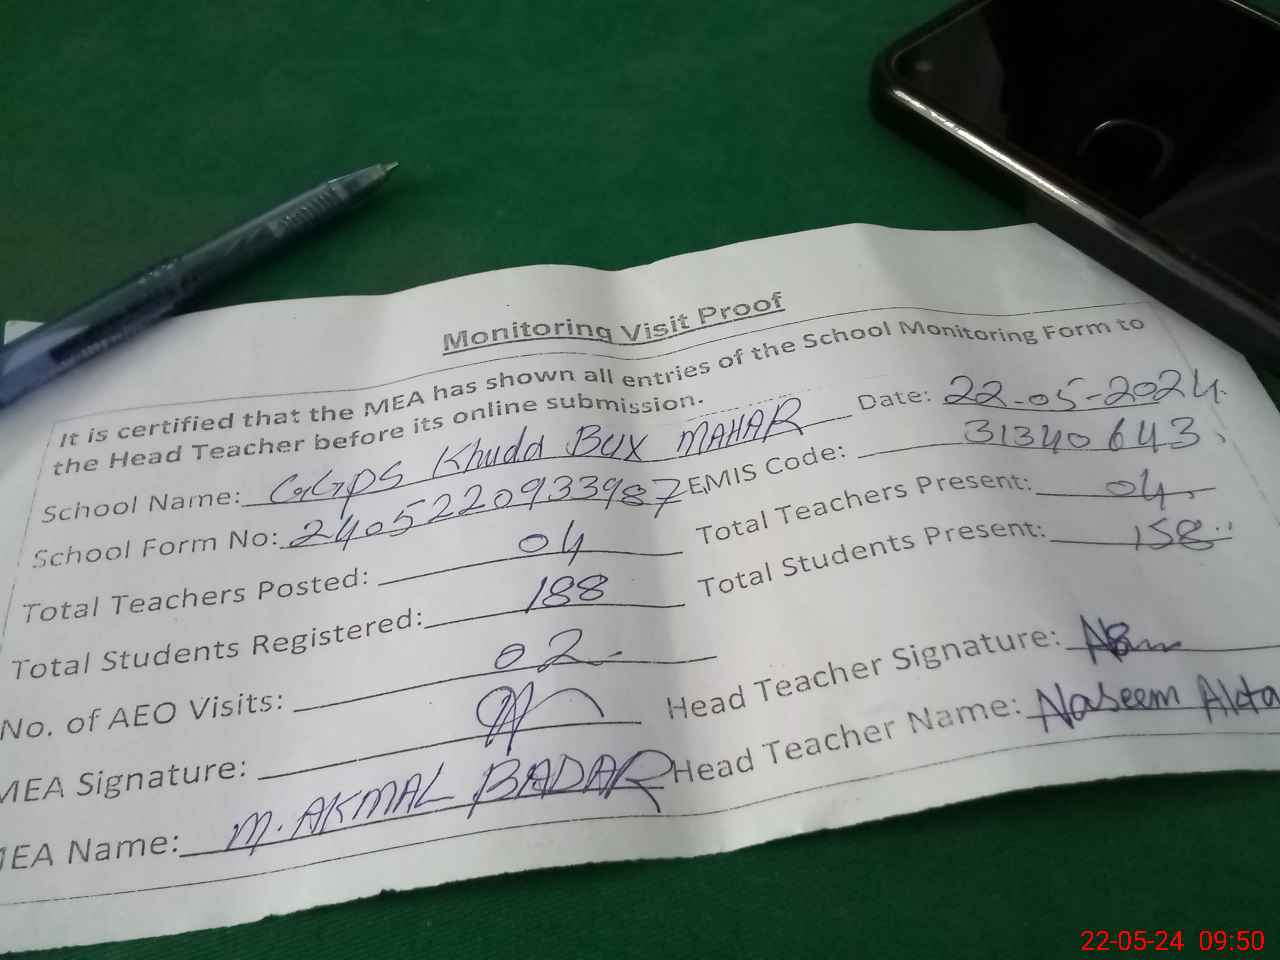 Monitoring Visit Proof
It is certified that the MEA has shown all entries of the School Monitoring Form to
the Head Teacher before its online submission.
School Name: GGPS Khuda Bux MAHAR Date: 22-05-2024
School Form No: 2405220933987 EMIS Code: 31340643
Total Teachers Posted: 04 Total Teachers Present: 04
Total Students Registered: 188 Total Students Present: 158
No. of AEO Visits: 02
MEA Signature: Head Teacher Signature:
MEA Name: M. AKMAL BADAR Head Teacher Name: Naseem
22-05-24 09:50